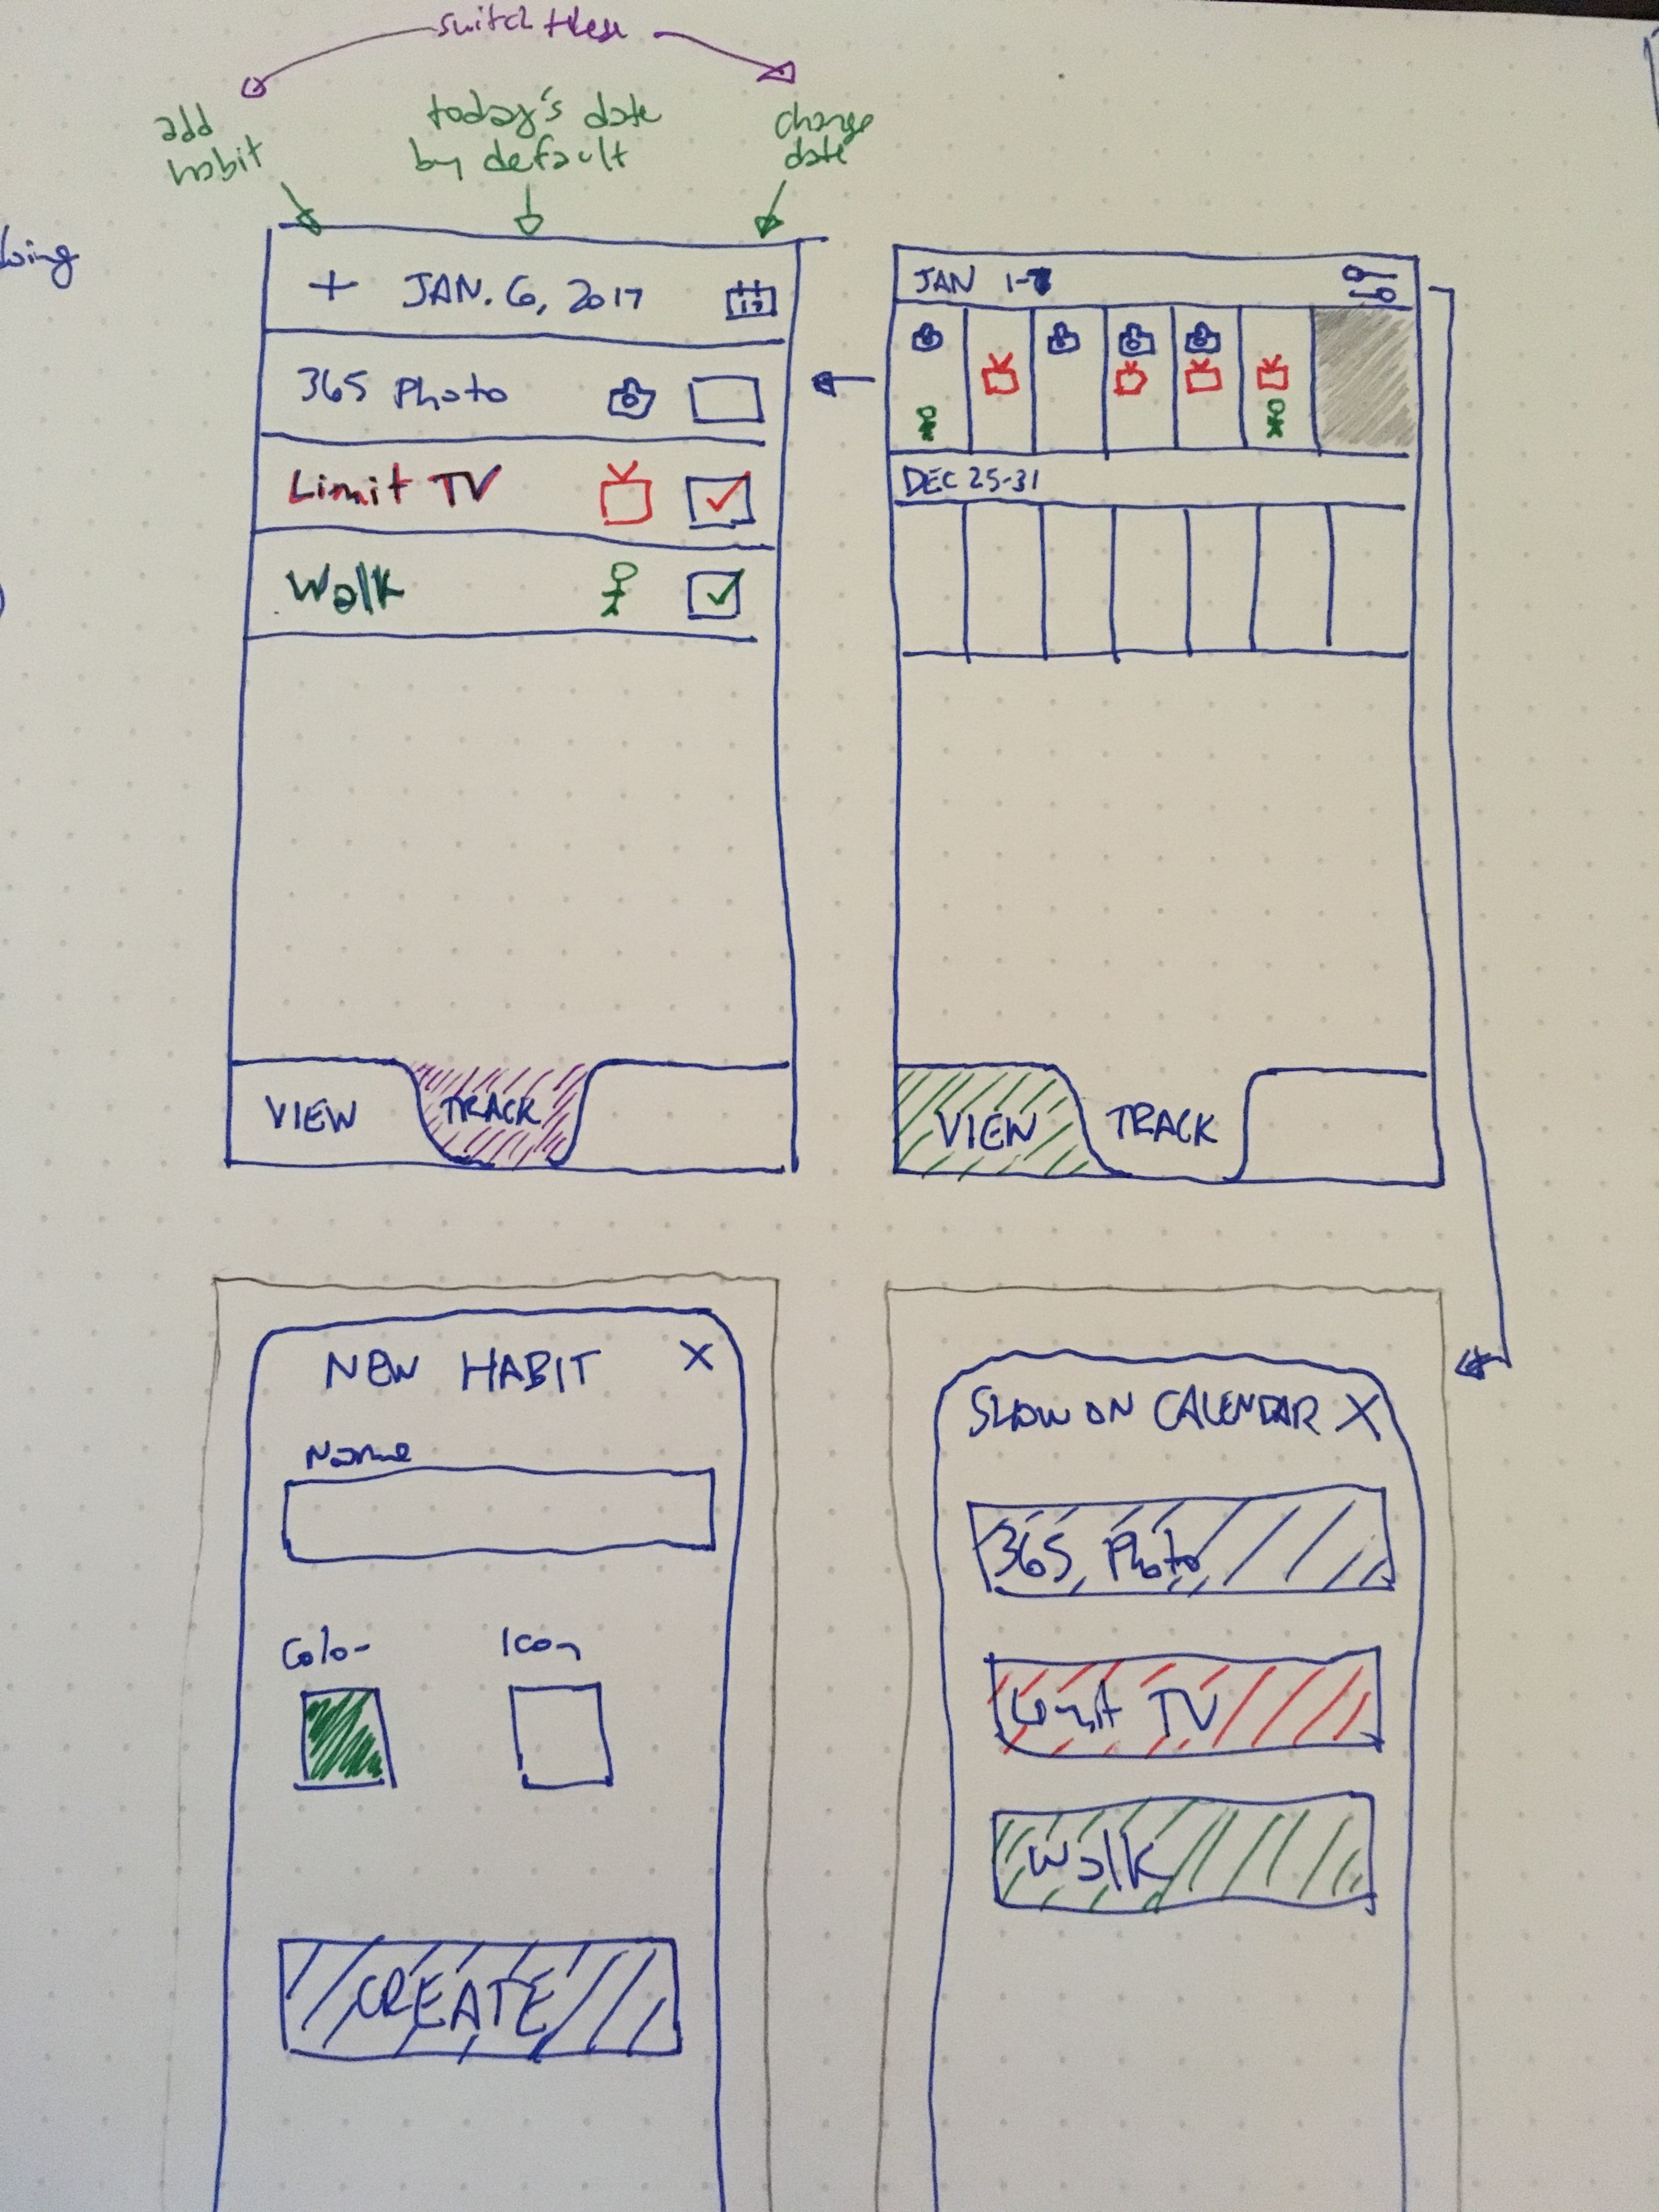 switch these
add
habit
today's date
by default
change
date
+ JAN. 6, 2017
17
365 Photo
Limit TV
Walk
VIEW
TRACK
JAN 1-7
DEC 25-31
VIEW
TRACK
NEW HABIT X
Name
Color
Icon
CREATE
SHOW ON CALENDAR X
365 Photo
Limit TV
Walk